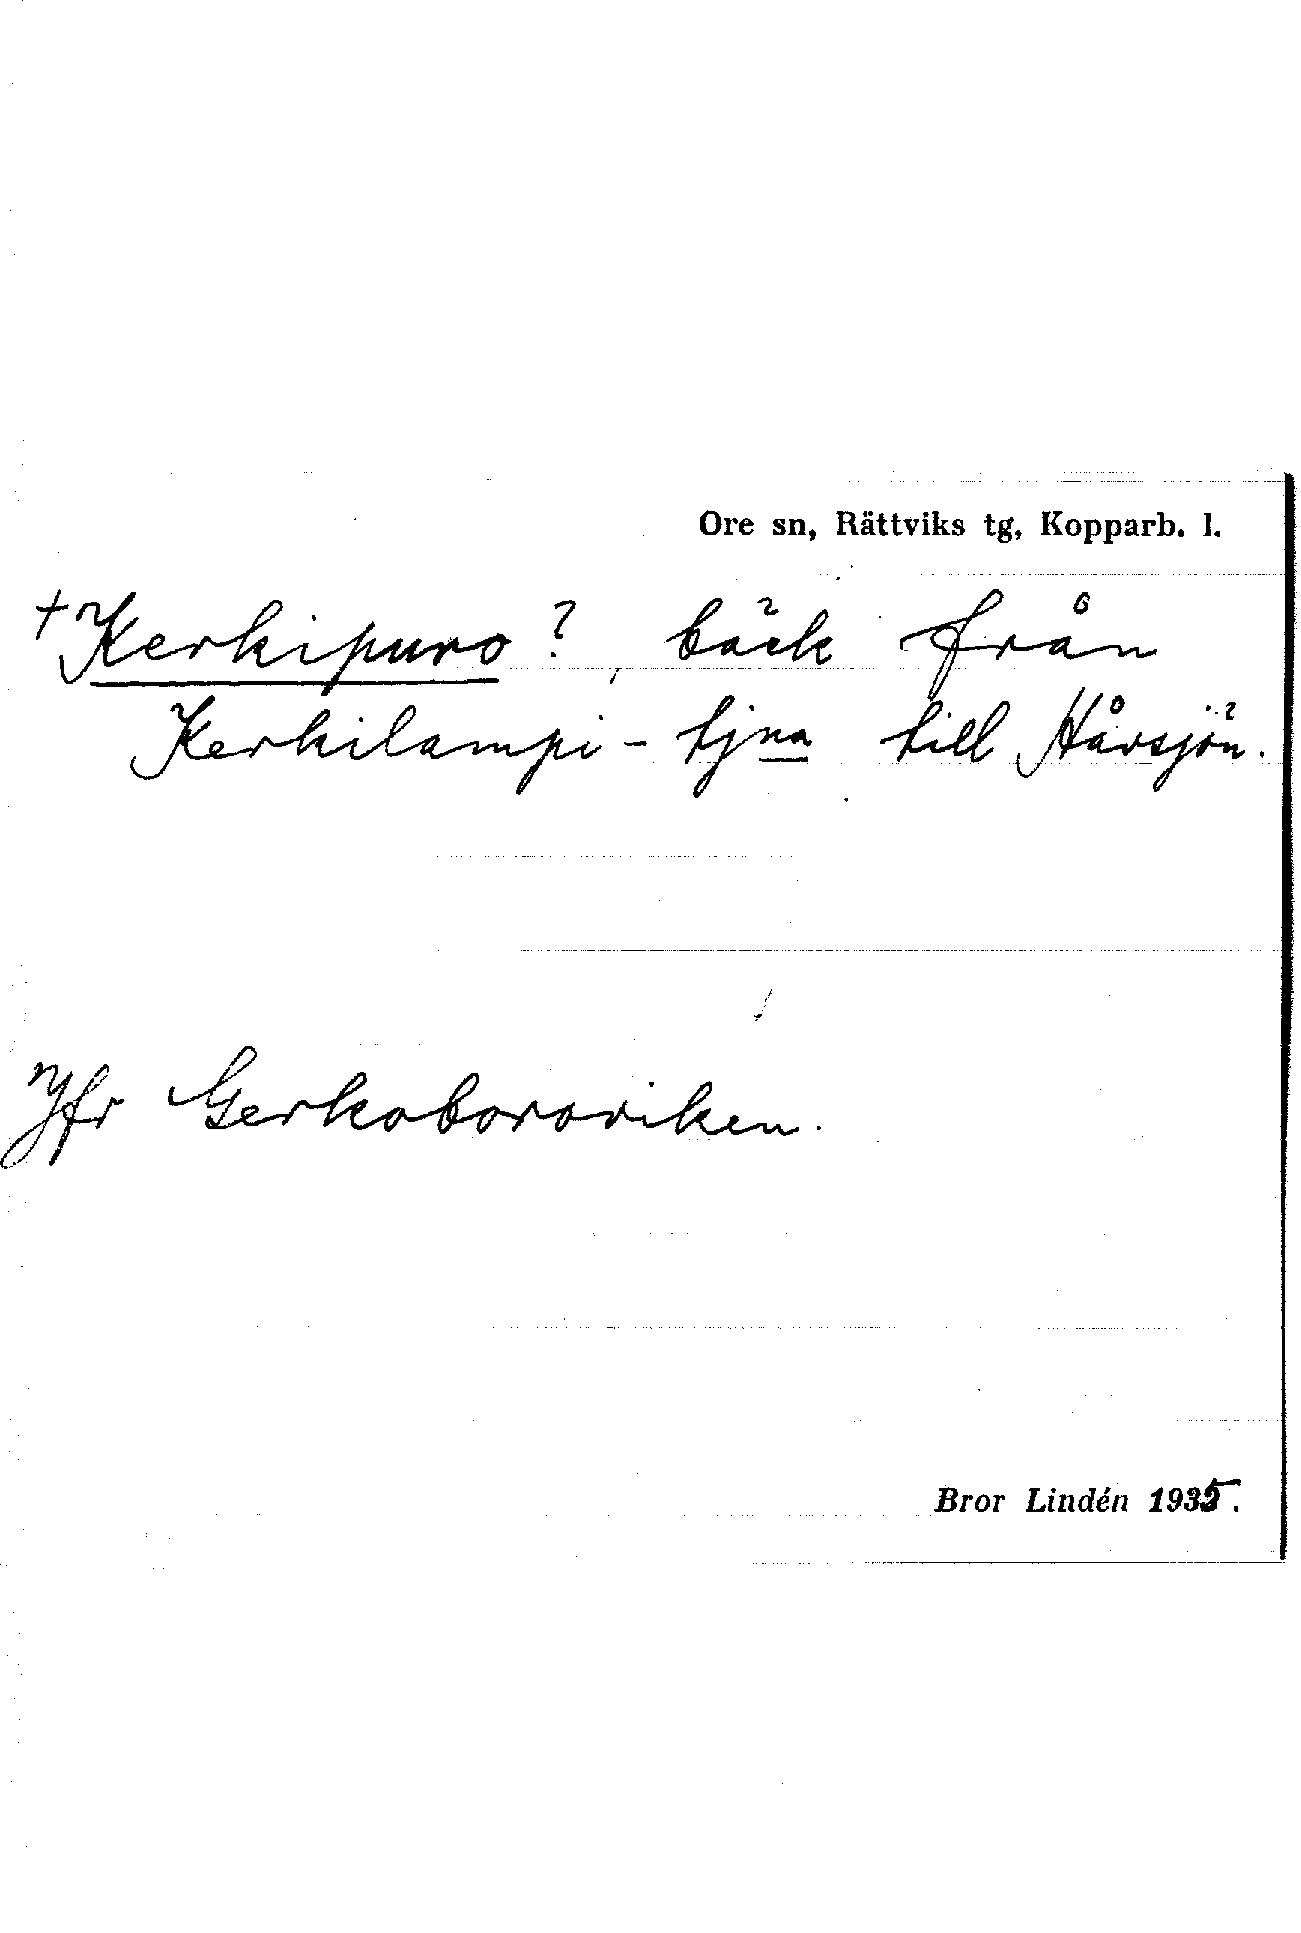 Ore sn, Rättviks tg, Kopparb. l.
+Kerkipuro?, bäck från
Kerkilampi-tjna till Hårsjön.
Jfr Gerkoboroviken.
Bror Lindén 1935.